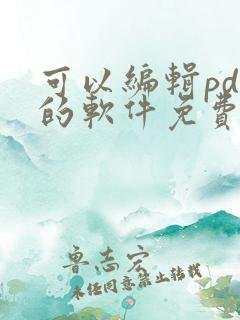 可以編輯pd
的軟件免費
鲁志宏
未经同意禁止转载